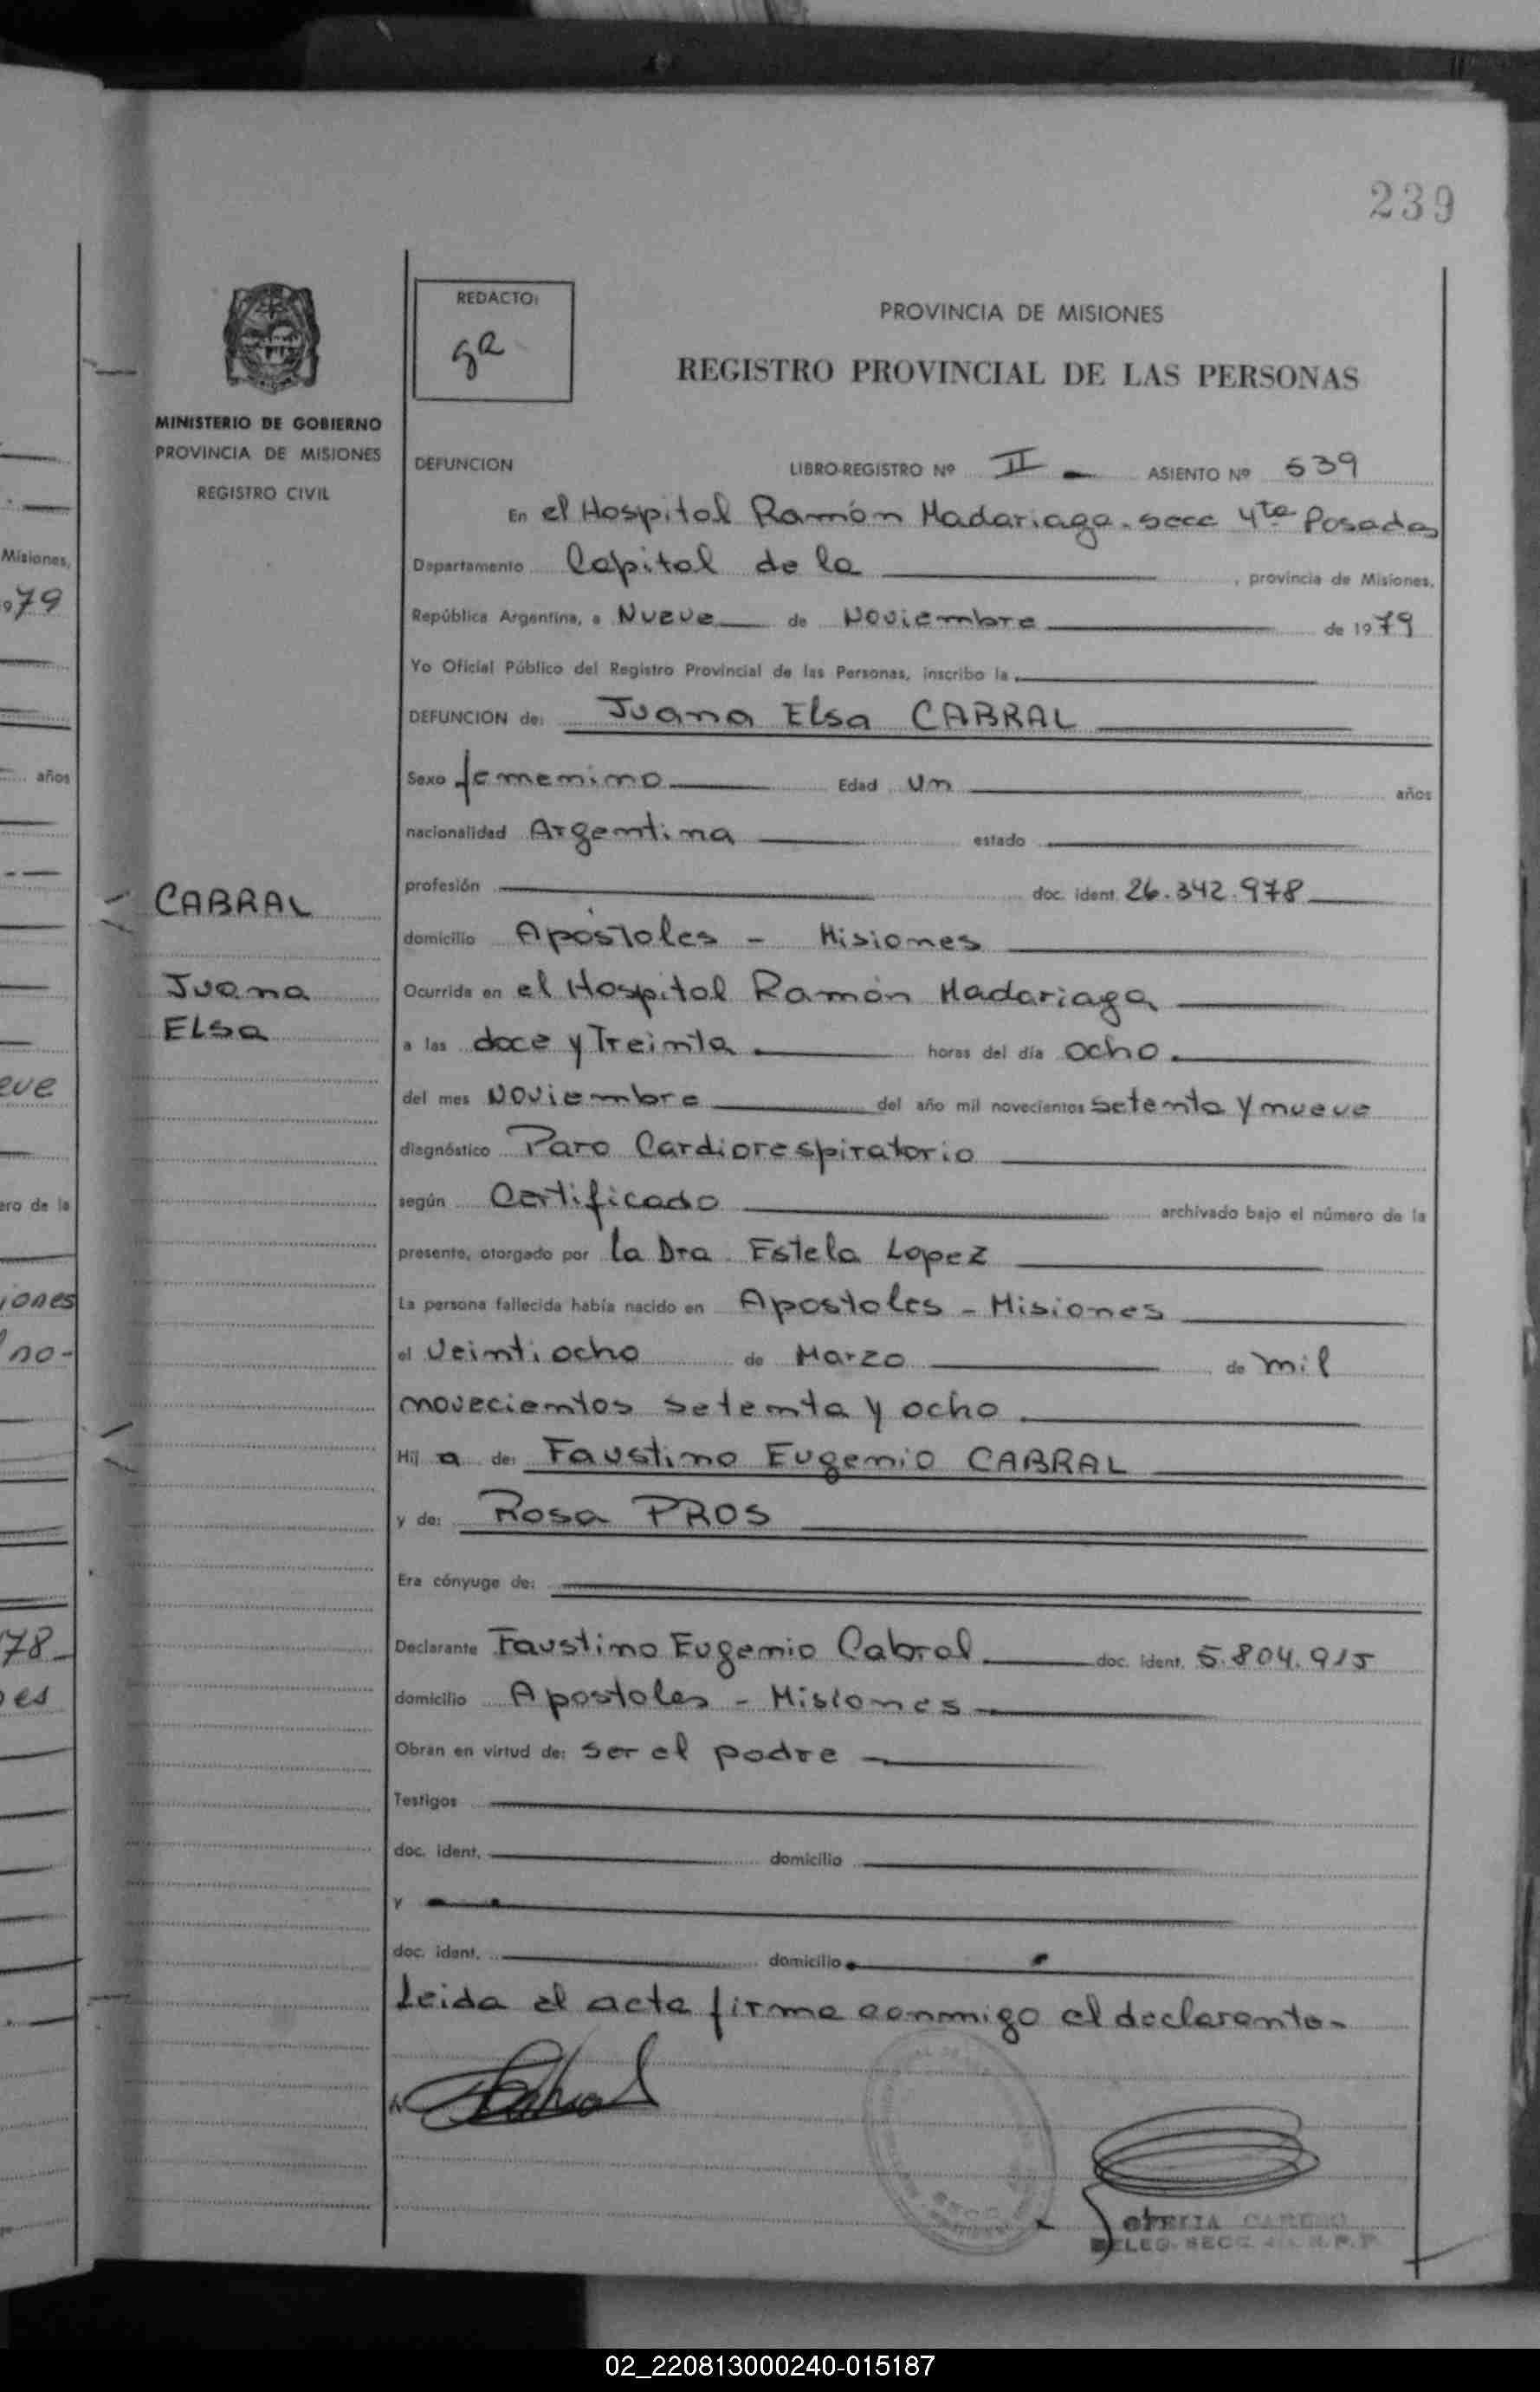 239
REDACTO:
ga
PROVINCIA DE MISIONES
REGISTRO PROVINCIAL DE LAS PERSONAS
MINISTERIO DE GOBIERNO
PROVINCIA DE MISIONES
REGISTRO CIVIL
DEFUNCION LIBRO-REGISTRO Nº II ASIENTO Nº 539
En el Hospital Ramón Madariaga - secc 4ta Posadas
Departamento Capital de la , provincia de Misiones,
República Argentina, a Nueve de Noviembre de 1979
Yo Oficial Público del Registro Provincial de las Personas, inscribo la
DEFUNCION de: Juana Elsa CABRAL
Sexo femenino Edad un años
nacionalidad Argentina estado
profesión doc. ident. 26.342.978
CABRAL
Juana
Elsa
domicilio Apóstoles - Misiones
Ocurrida en el Hospital Ramón Madariaga
a las doce y Treinta horas del día ocho
del mes Noviembre del año mil novecientos setenta y nueve
diagnóstico Paro Cardiorespiratorio
según Certificado archivado bajo el número de la
presente, otorgado por la Dra. Estela Lopez
La persona fallecida había nacido en Apostoles - Misiones
el Veintiocho de Marzo de mil
novecientos setenta y ocho
Hij a de: Faustino Eugenio CABRAL
y de: Rosa PROS
Era cónyuge de:
Declarante Faustino Eugenio Cabral doc. ident. 5.804.915
domicilio Apostoles - Misiones
Obran en virtud de: ser el padre
Testigos
doc. ident. domicilio
y
doc. ident. domicilio
Leida el acta firma conmigo el declarante-
Misiones,
1979
años
eve
ero de la
iones
no-
78
es
02_220813000240-015187